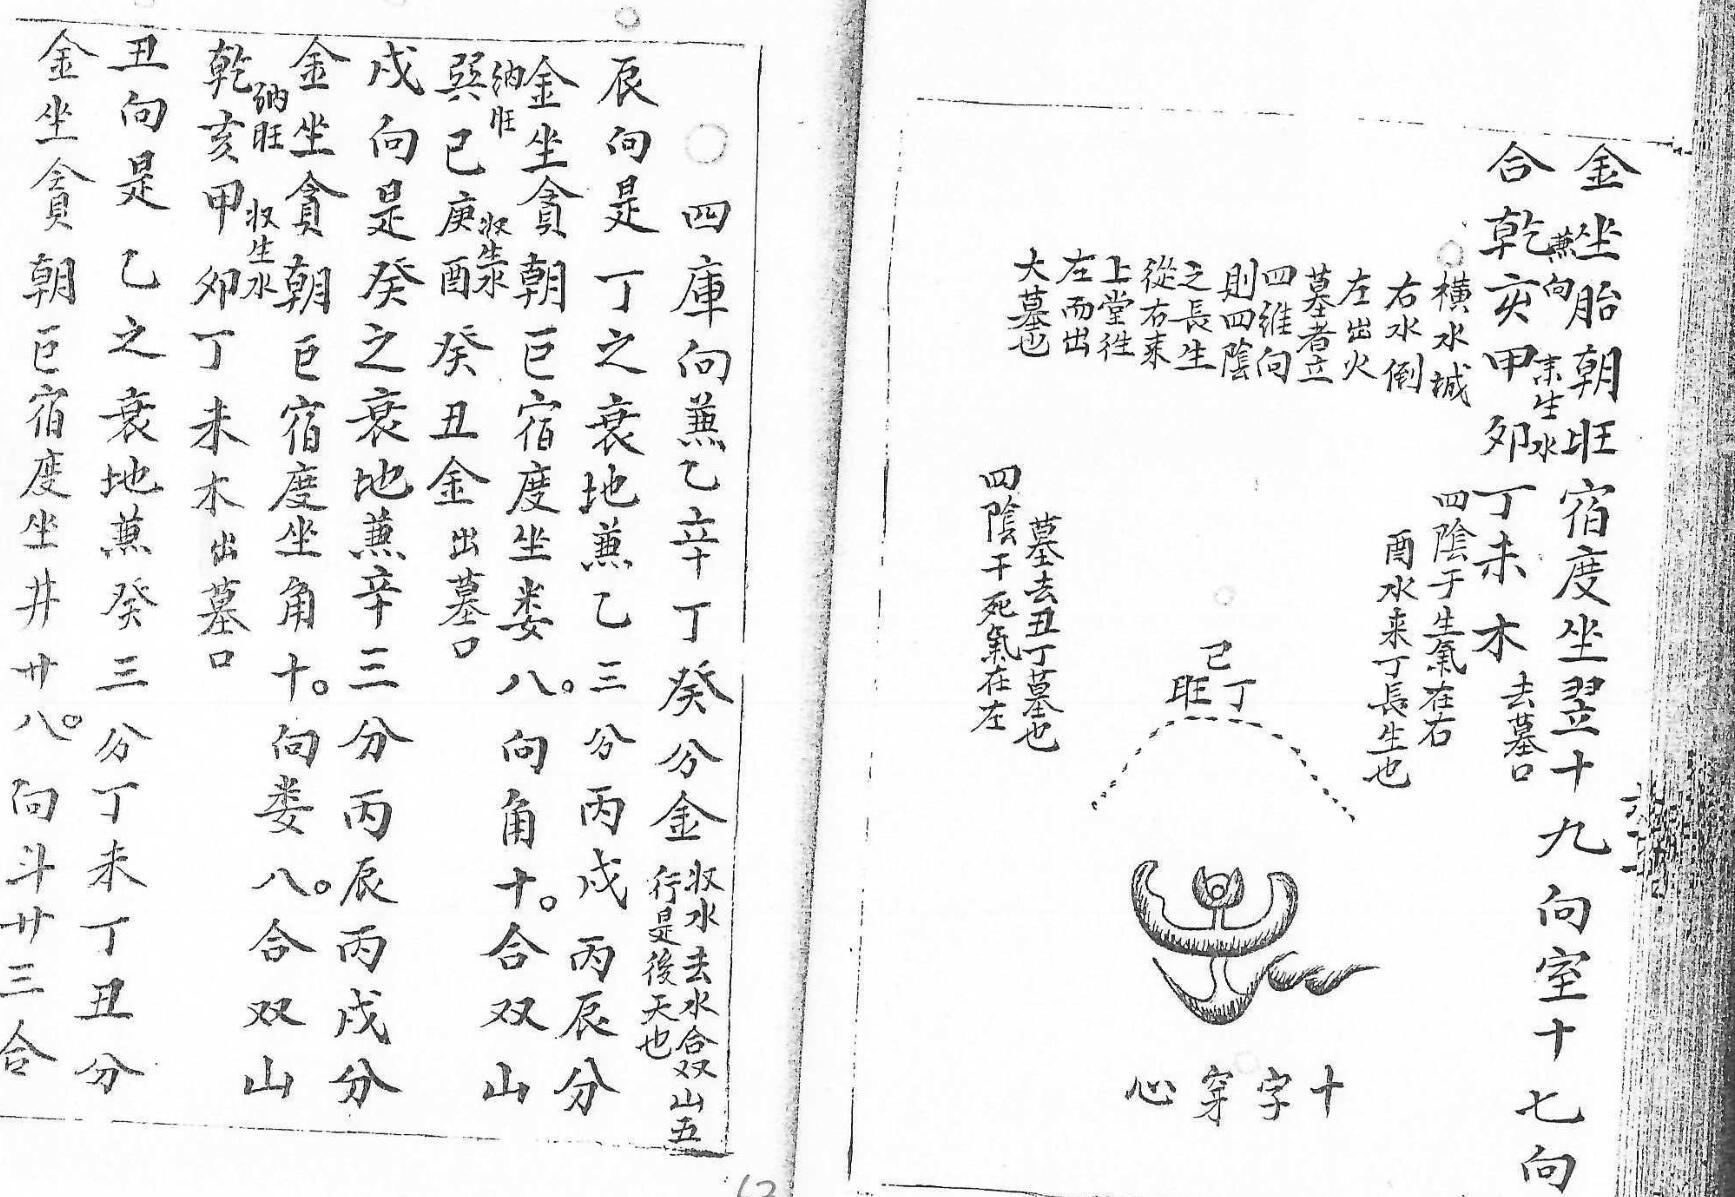 金坐胎朝旺宿度坐翌十九向室十七向
兼向
合乾亥甲卯丁未木
來生水
去墓口
橫水城
右水倒
左出火
墓者立
四維向
則四陰
之長生
從右來
上堂往
左而出
大墓也
四陰于生氣在右
酉水来丁長生也
墓去丑丁墓也
四陰干死氣在左
巳
丁
旺
十字穿心
四庫向兼乙辛丁癸分金
収水去水合双山五
行是後天也
辰向是丁之衰地兼乙三分丙戍丙辰分
金坐貪朝巨宿度坐娄八。向角十。合双山
納旺
収生水
巽巳庚酉癸丑金出墓口
戍向是癸之衰地兼辛三分丙辰丙戍分
金坐貪朝巨宿度坐角十。向娄八。合双山
納旺
収生水
乾亥甲卯丁未木出墓口
丑向是乙之衰地兼癸三分丁未丁丑分
金坐貪朝巨宿度坐井廿八。向斗廿三合